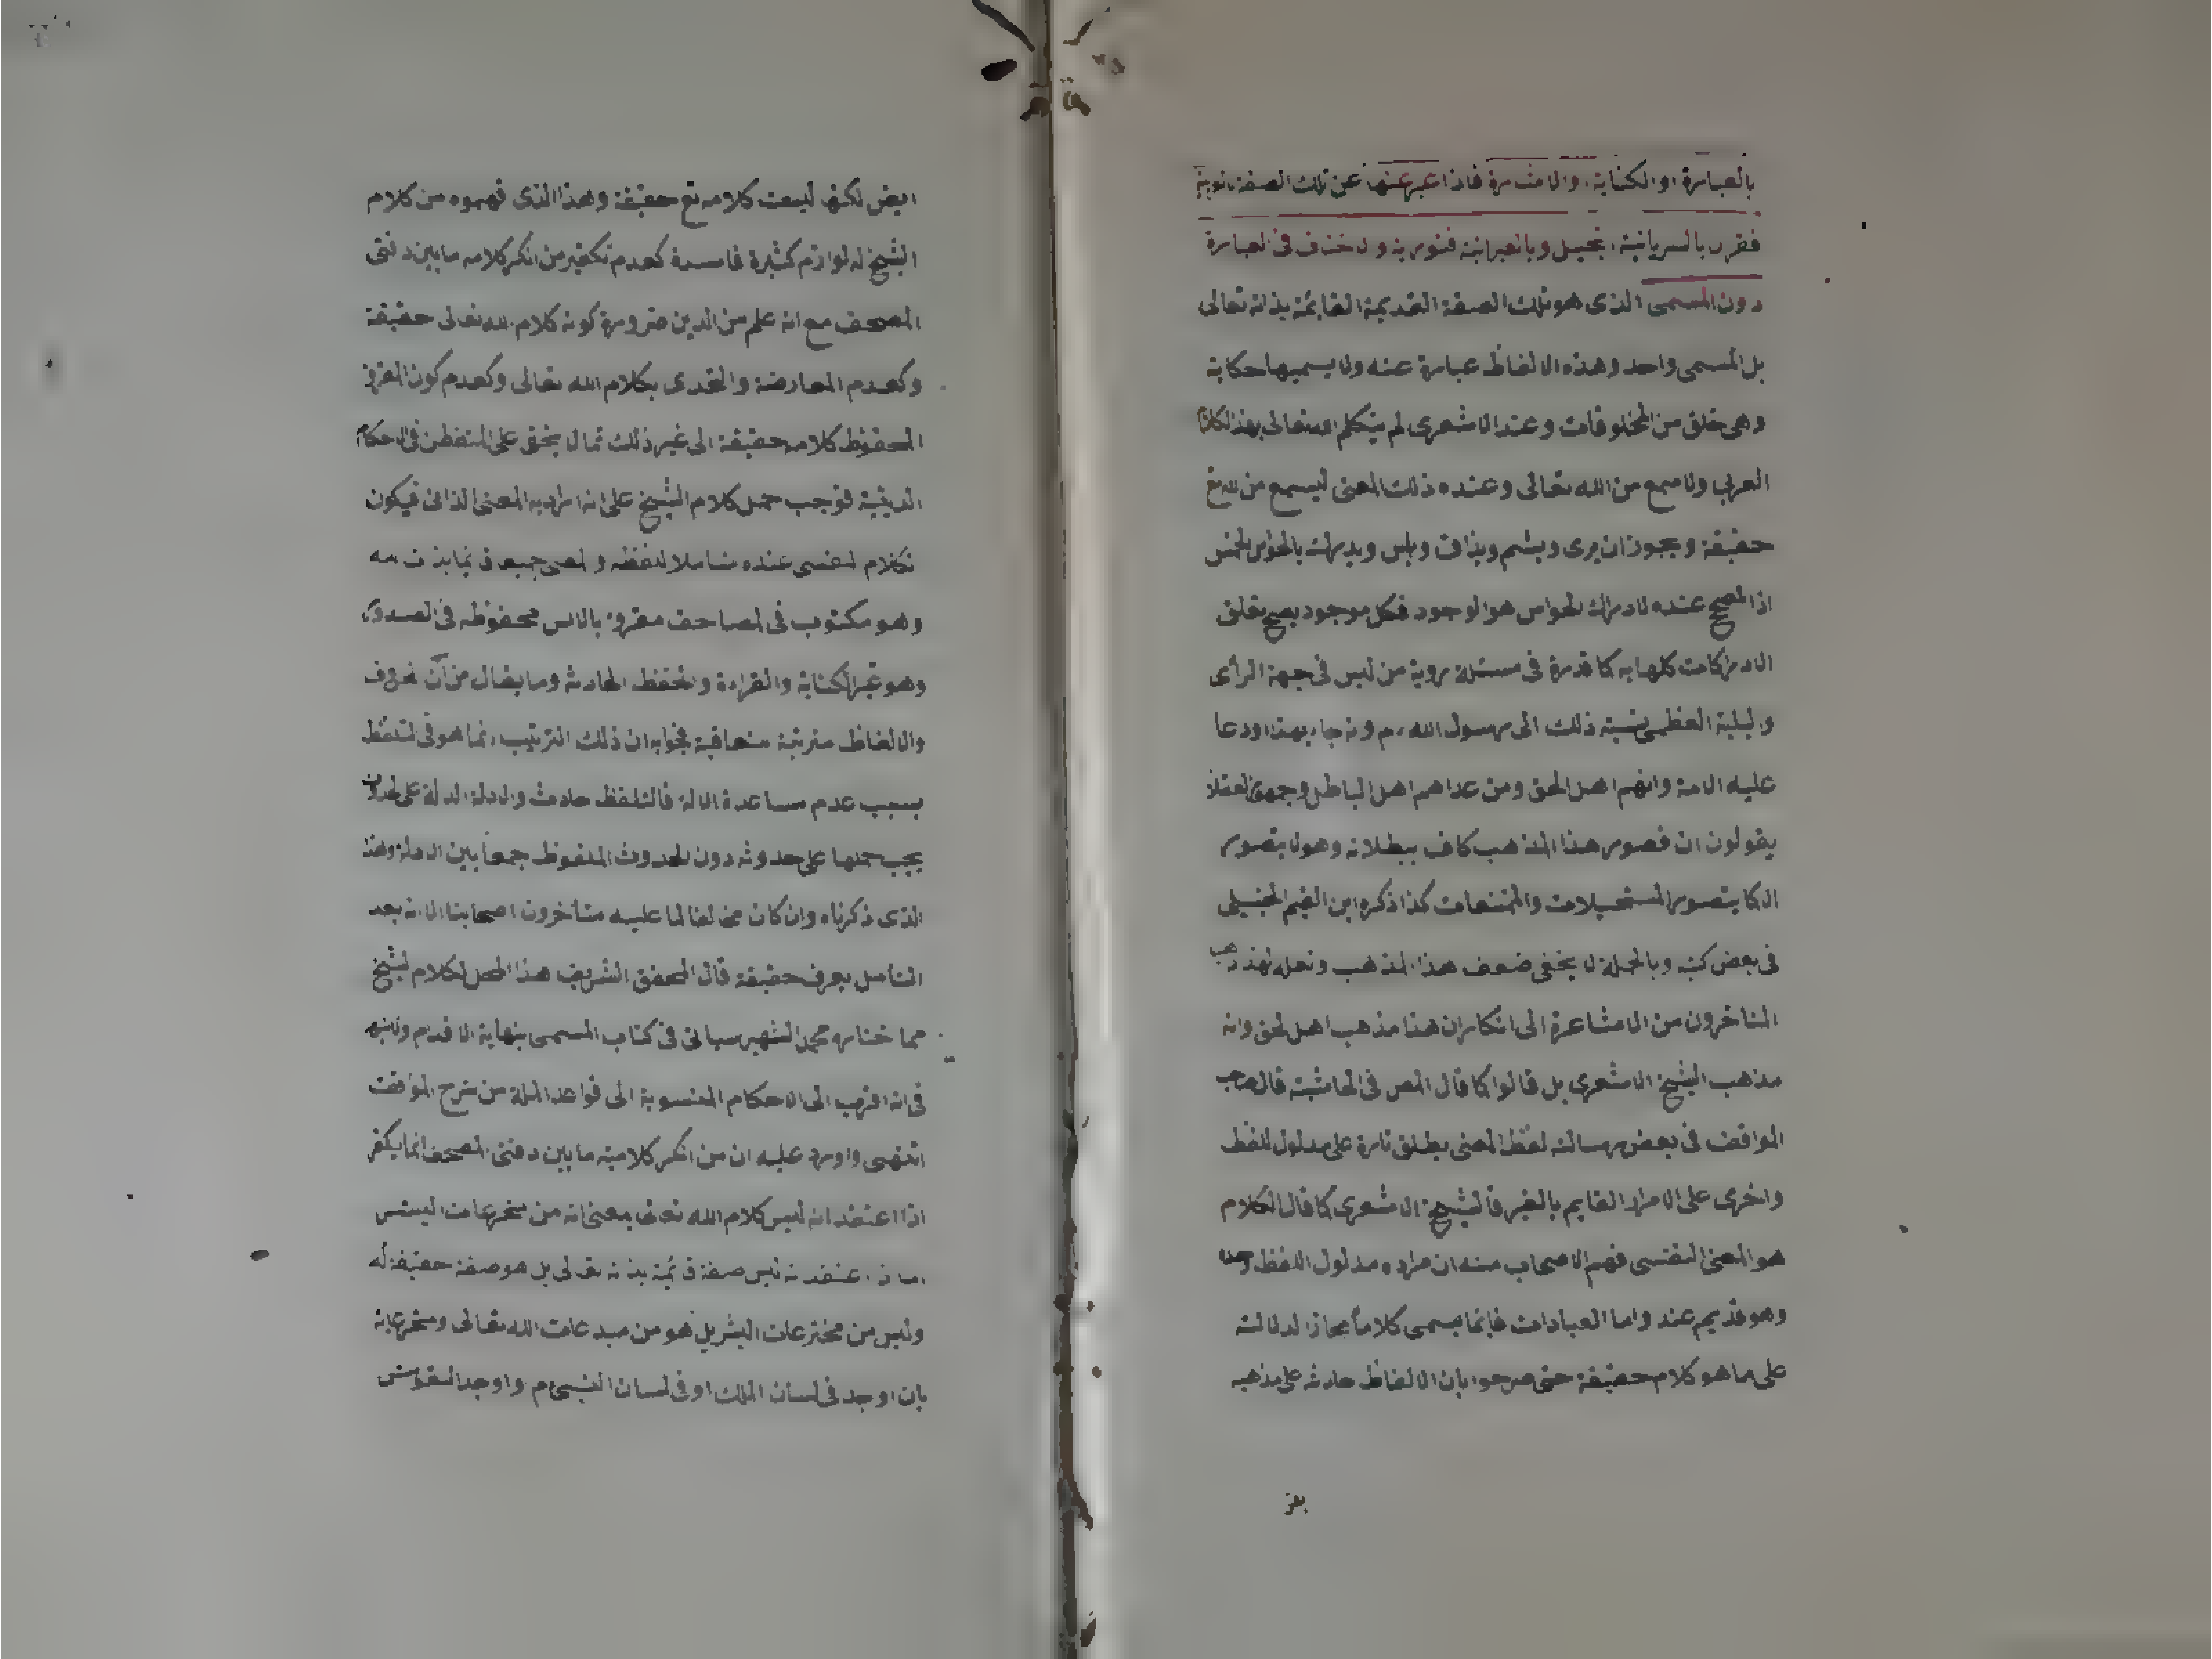 بالعبارة او الكتابة والاشارة فاذا عبر عنها عن تلك الصفة
بالسريانية وبالعبرانية والاختلاف في العبارة
دون المسمى الذى هو تلك الصفة القديمة القايمة بذاته تعالى
بل المسمى واحد وهذه الالفاظ عبارة عنه ولا يسميها حكاية
وهى خلق من المخلوقات وعند الاشعرى لم يتكلم الله تعالى بهذا الكلام
العربى ولا سمع من الله تعالى وعنده ذلك المعنى ليسمع من الله تع
حقيقة ويجوز ان يرى ويشم ويذاق ويلمس ويدرك بالحواس الخمس
اذ المصحح عنده لادراك الحواس هو الوجود فكل موجود يصح تعلق
الادراكات كلها به كما قدره في مسئلة روية من ليس في جهة الرأى
والبلية العظمى نسبة ذلك الى رسول الله م وانه جاء بهذا ودعا
عليه الامة وانهم اهل الحق ومن عداهم اهل الباطل وجمهور العقلا
يقولون ان تصور هذا المذهب كاف ببطلانه وهو لا يتصور
الا كما يتصور المستحيلات والممتنعات كذا ذكره ابن القيم الحنبلى
في بعض كتبه وبالجملة لا يخفى ضعف هذا المذهب ولعله لهذا ذهب
المتاخرون من الاشاعرة الى انكار ان هذا مذهب اهل الحق وانه
مذهب الشيخ الاشعرى بل قالوا كما قال المص في الحاشية قال صاحب
المواقف في بعض رسالته لفظ المعنى يطلق تارة على مدلول اللفظ
واخرى على الامر القايم بالغير فالشيخ الاشعرى كما قال الكلام
هو المعنى النفسى فهم الاصحاب منه ان مراده مدلول اللفظ وحده
وهو قديم عند واما العبادات فانما يسمى كلاماً مجازا لدلالته
على ما هو كلام حقيقة حتى صرحوا بان الالفاظ حادثة على مذهبه
ايض لكنها ليست كلامه تع حقيقة وهذا الذى فهموه من كلام
الشيخ له لوازم كثيرة فاسدة كعدم تكفير من انكر كلامه ما بين دفتى
المصحف مع انه علم من الدين ضرورة كونه كلام الله تعالى حقيقة
وكعدم المعارضة والتحدى بكلام الله تعالى وكعدم كون المقرو
المحفوظ كلامه حقيقة الى غير ذلك مما لا يخفى على المتفطن في الاحكام
الدينية فوجب حمل كلام الشيخ على انه اراد به المعنى الثانى فيكون
الكلام النفسى عنده شاملا للفظه والمعنى جميعا قايما بذات الله
وهو مكتوب في المصاحف مقرو بالالسن محفوظه في الصدور
وهو غير الكتابة والقراءة والحفظ الحادثة وما يقال من ان الحروف
والالفاظ مترتبة متعاقبة فجوابه ان ذلك الترتيب انما هو في التلفظ
بسبب عدم مساعدة الالة فالتلفظ حادث والادلة الدالة على الحدوث
يجب حملها على حدوثه دون الحدوث الملفوظ جمعاً بين الادلة وهذا
الذى ذكرناه وان كان مخالفا لما عليه متاخرون اصحابنا الا انه بعد
التامل يعرف حقيقة قال المحقق الشريف هذا المحمل لكلام الشيخ
مما اختاره محمد الشهرستانى في كتاب المسمى بنهاية الاقدام
في انه اقرب الى الاحكام المنسوبة الى قواعد الملة من شرح المواقف
انتهى واورد عليه ان من انكر كلامية ما بين دفتى المصحف انما يكفر
اذا اعتقد انه ليس كلام الله تعالى بمعنى انه من مخترعات البشر
اما اذا اعتقد انه ليس صفة قايمة بذاته تعالى بل هو صفة حقيقة له
وليس من مخترعات البشر بل هو من مبدعات الله تعالى ومخترعاته
بان اوجد في لسان الملك او في لسان النبى م واوجد